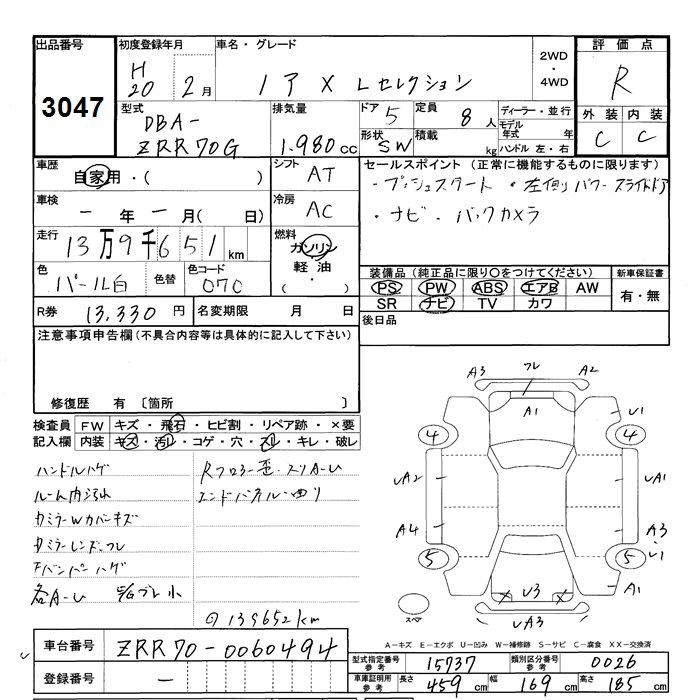 出品番号 初度登録年月 車名・グレード 2WD・4WD 評価点
3047 H20 2月 ノア X Lセレクション R
型式 排気量 ドア 5 定員 8人 ディーラー・並行 外装 内装
DBA-ZRR70G 1.980cc 形状 SW 積載 kg モデル年式 年 C C
ハンドル 左・右
車歴 シフト セールスポイント (正常に機能するものに限ります)
自家用・( ) AT ・プッシュスタート ・左側パワースライドドア
車検 冷房 ・ナビ・バックカメラ
ー年ー月(日) AC
走行 燃料
13万9千651km ガソリン
軽油
( ・ )
色 色替 色コード 装備品 (純正品に限り〇をつけてください) 新車保証書
パール白 070 PS PW ABS エアB AW 有・無
SR ナビ TV カワ
R券 13,330円 名変期限 月 日 後日品
注意事項申告欄 (不具合内容等は具体的に記入して下さい)
修復歴 有 〔箇所 〕
検査員記入欄 FW キズ・飛石・ヒビ割・リペア跡・×要
内装 キズ・汚レ・コゲ・穴・スレ・キレ・破レ
ハンドルハゲ
ルーム内汚れ エンドパネル曲り
カミラーWカバーキズ
カミラーレンズフレ
Fバンパーハゲ
各A-U
139652km
A3 フレ A2
A1
U1
4 4
UA2 UA1
A4 A3
U1
5 5
A1
× U3 ×
UA3
スペア
A-キズ E-エクボ U-凹み W-補修跡 S-サビ C-腐食 XX-交換済
車台番号 ZRR70-0060494
登録番号 ー
型式指定番号 参考 15737 類別区分番号 参考 0026
車庫証明用 参考 長さ 459cm 幅 169cm 高さ 185cm